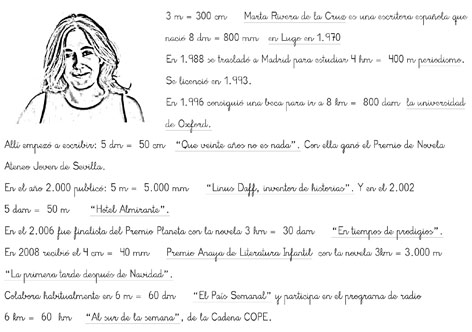 3 m = 300 cm Marta Rivera de la Cruz es una escritora española que
nació 8 dm = 800 mm en Lugo en 1.970
En 1.988 se trasladó a Madrid para estudiar 4 hm = 400 m periodismo.
Se licenció en 1.993.
En 1.996 consiguió una beca para ir a 8 km = 800 dam la universidad
de Oxford.
Allí empezó a escribir: 5 dm = 50 cm "Que veinte años no es nada". Con ella ganó el Premio de Novela
Ateneo Joven de Sevilla.
En el año 2.000 publicó: 5 m = 5.000 mm "Linus Daff, inventor de historias". Y en el 2.002
5 dam = 50 m "Hotel Almirante".
En el 2.006 fue finalista del Premio Planeta con la novela 3 hm = 30 dam "En tiempos de prodigios".
En 2008 recibió el 4 cm = 40 mm Premio Anaya de Literatura Infantil con la novela 3km = 3.000 m
"La primera tarde después de Navidad".
Colabora habitualmente en 6 m = 60 dm "El País Semanal" y participa en el programa de radio
6 km = 60 hm "Al sur de la semana", de la Cadena COPE.